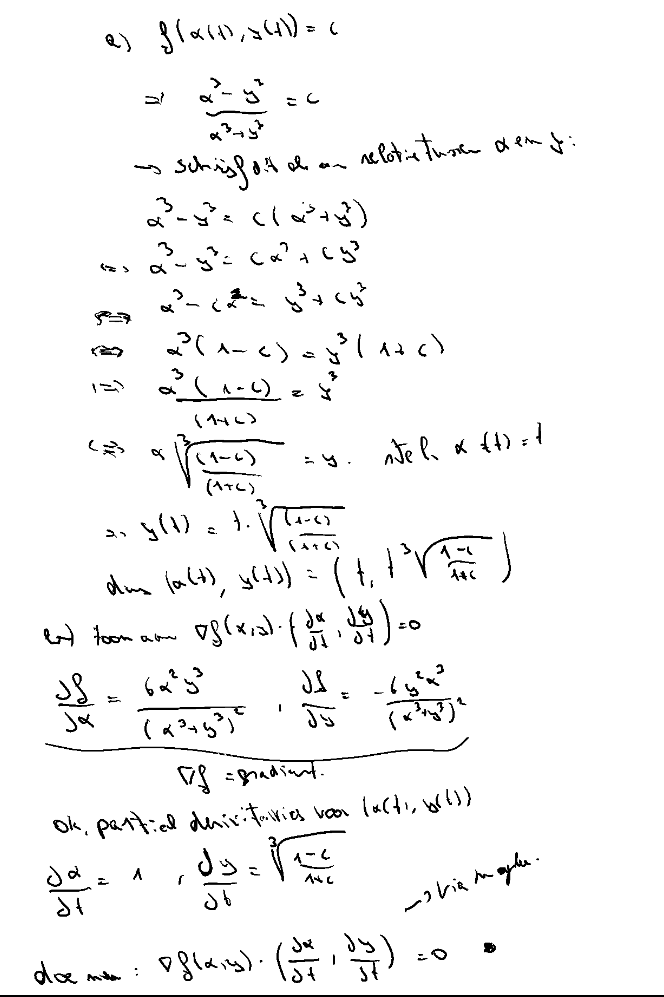 a) f(x(t), y(t)) = c
=> (x³ - y³)/(x³ + y³) = c
→ schrijf dit als een relatie tussen x en y:
x³ - y³ = c(x³ + y³)
<=> x³ - y³ = cx³ + cy³
<=> x³ - cx³ = y³ + cy³
<=> x³(1 - c) = y³(1 + c)
<=> x³(1 - c)/(1 + c) = y³
<=> x ∛((1 - c)/(1 + c)) = y. stel x(t) = t
=> y(t) = t · ∛((1 - c)/(1 + c))
dus (x(t), y(t)) = (t, t ∛((1 - c)/(1 + c)))
toon aan ∇f(x,y) · (∂x/∂t, ∂y/∂t) = 0
∂f/∂x = 6x²y³/(x³ + y³)², ∂f/∂y = -6y²x³/(x³ + y³)²
∇f = gradient.
ok, partial derivitavies voor (x(t), y(t))
∂x/∂t = 1, ∂y/∂t = ∛((1 - c)/(1 + c))
→ via maple.
doe : ∇f(x,y) · (∂x/∂t, ∂y/∂t) = 0